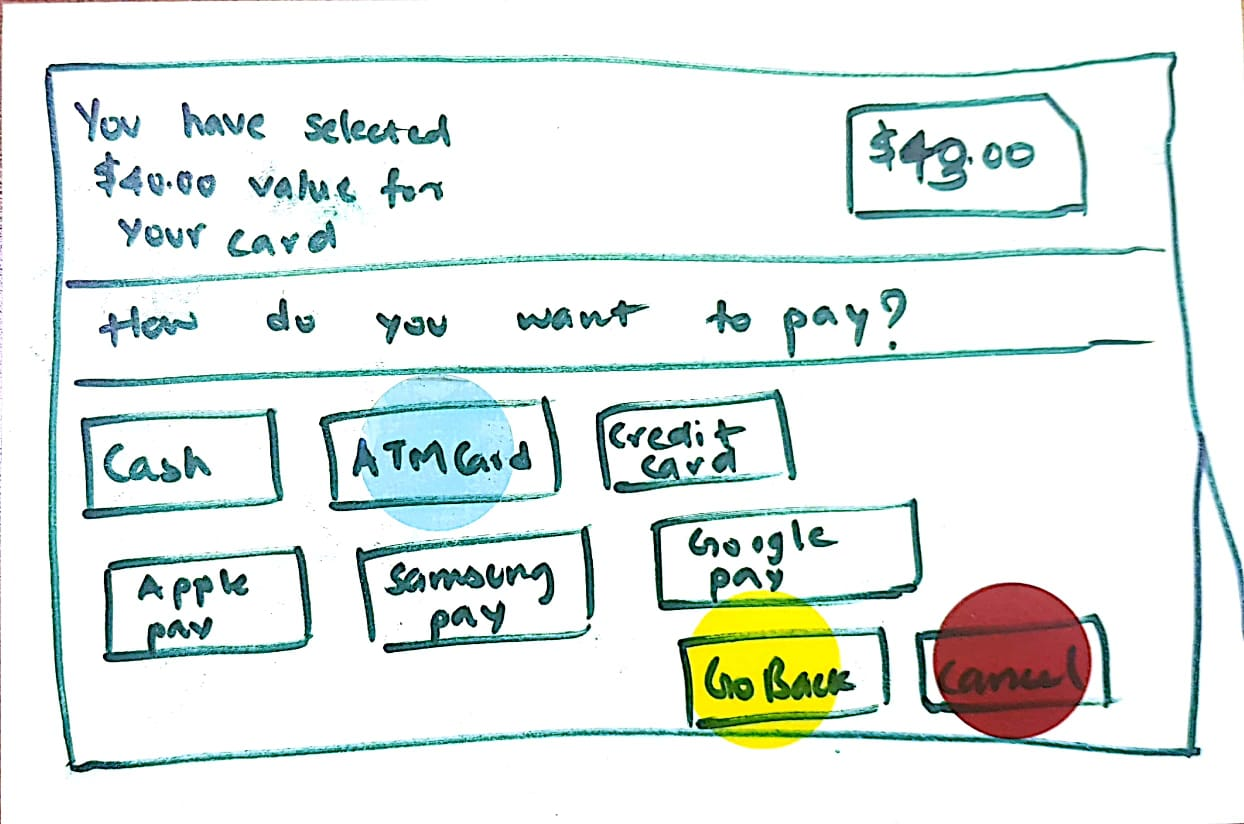 You have selected
$40.00 value for
Your card
How do you want to pay?
Cash
ATM Card
Credit
card
Apple
pay
Samsung
pay
Google
pay
Go Back
Cancel